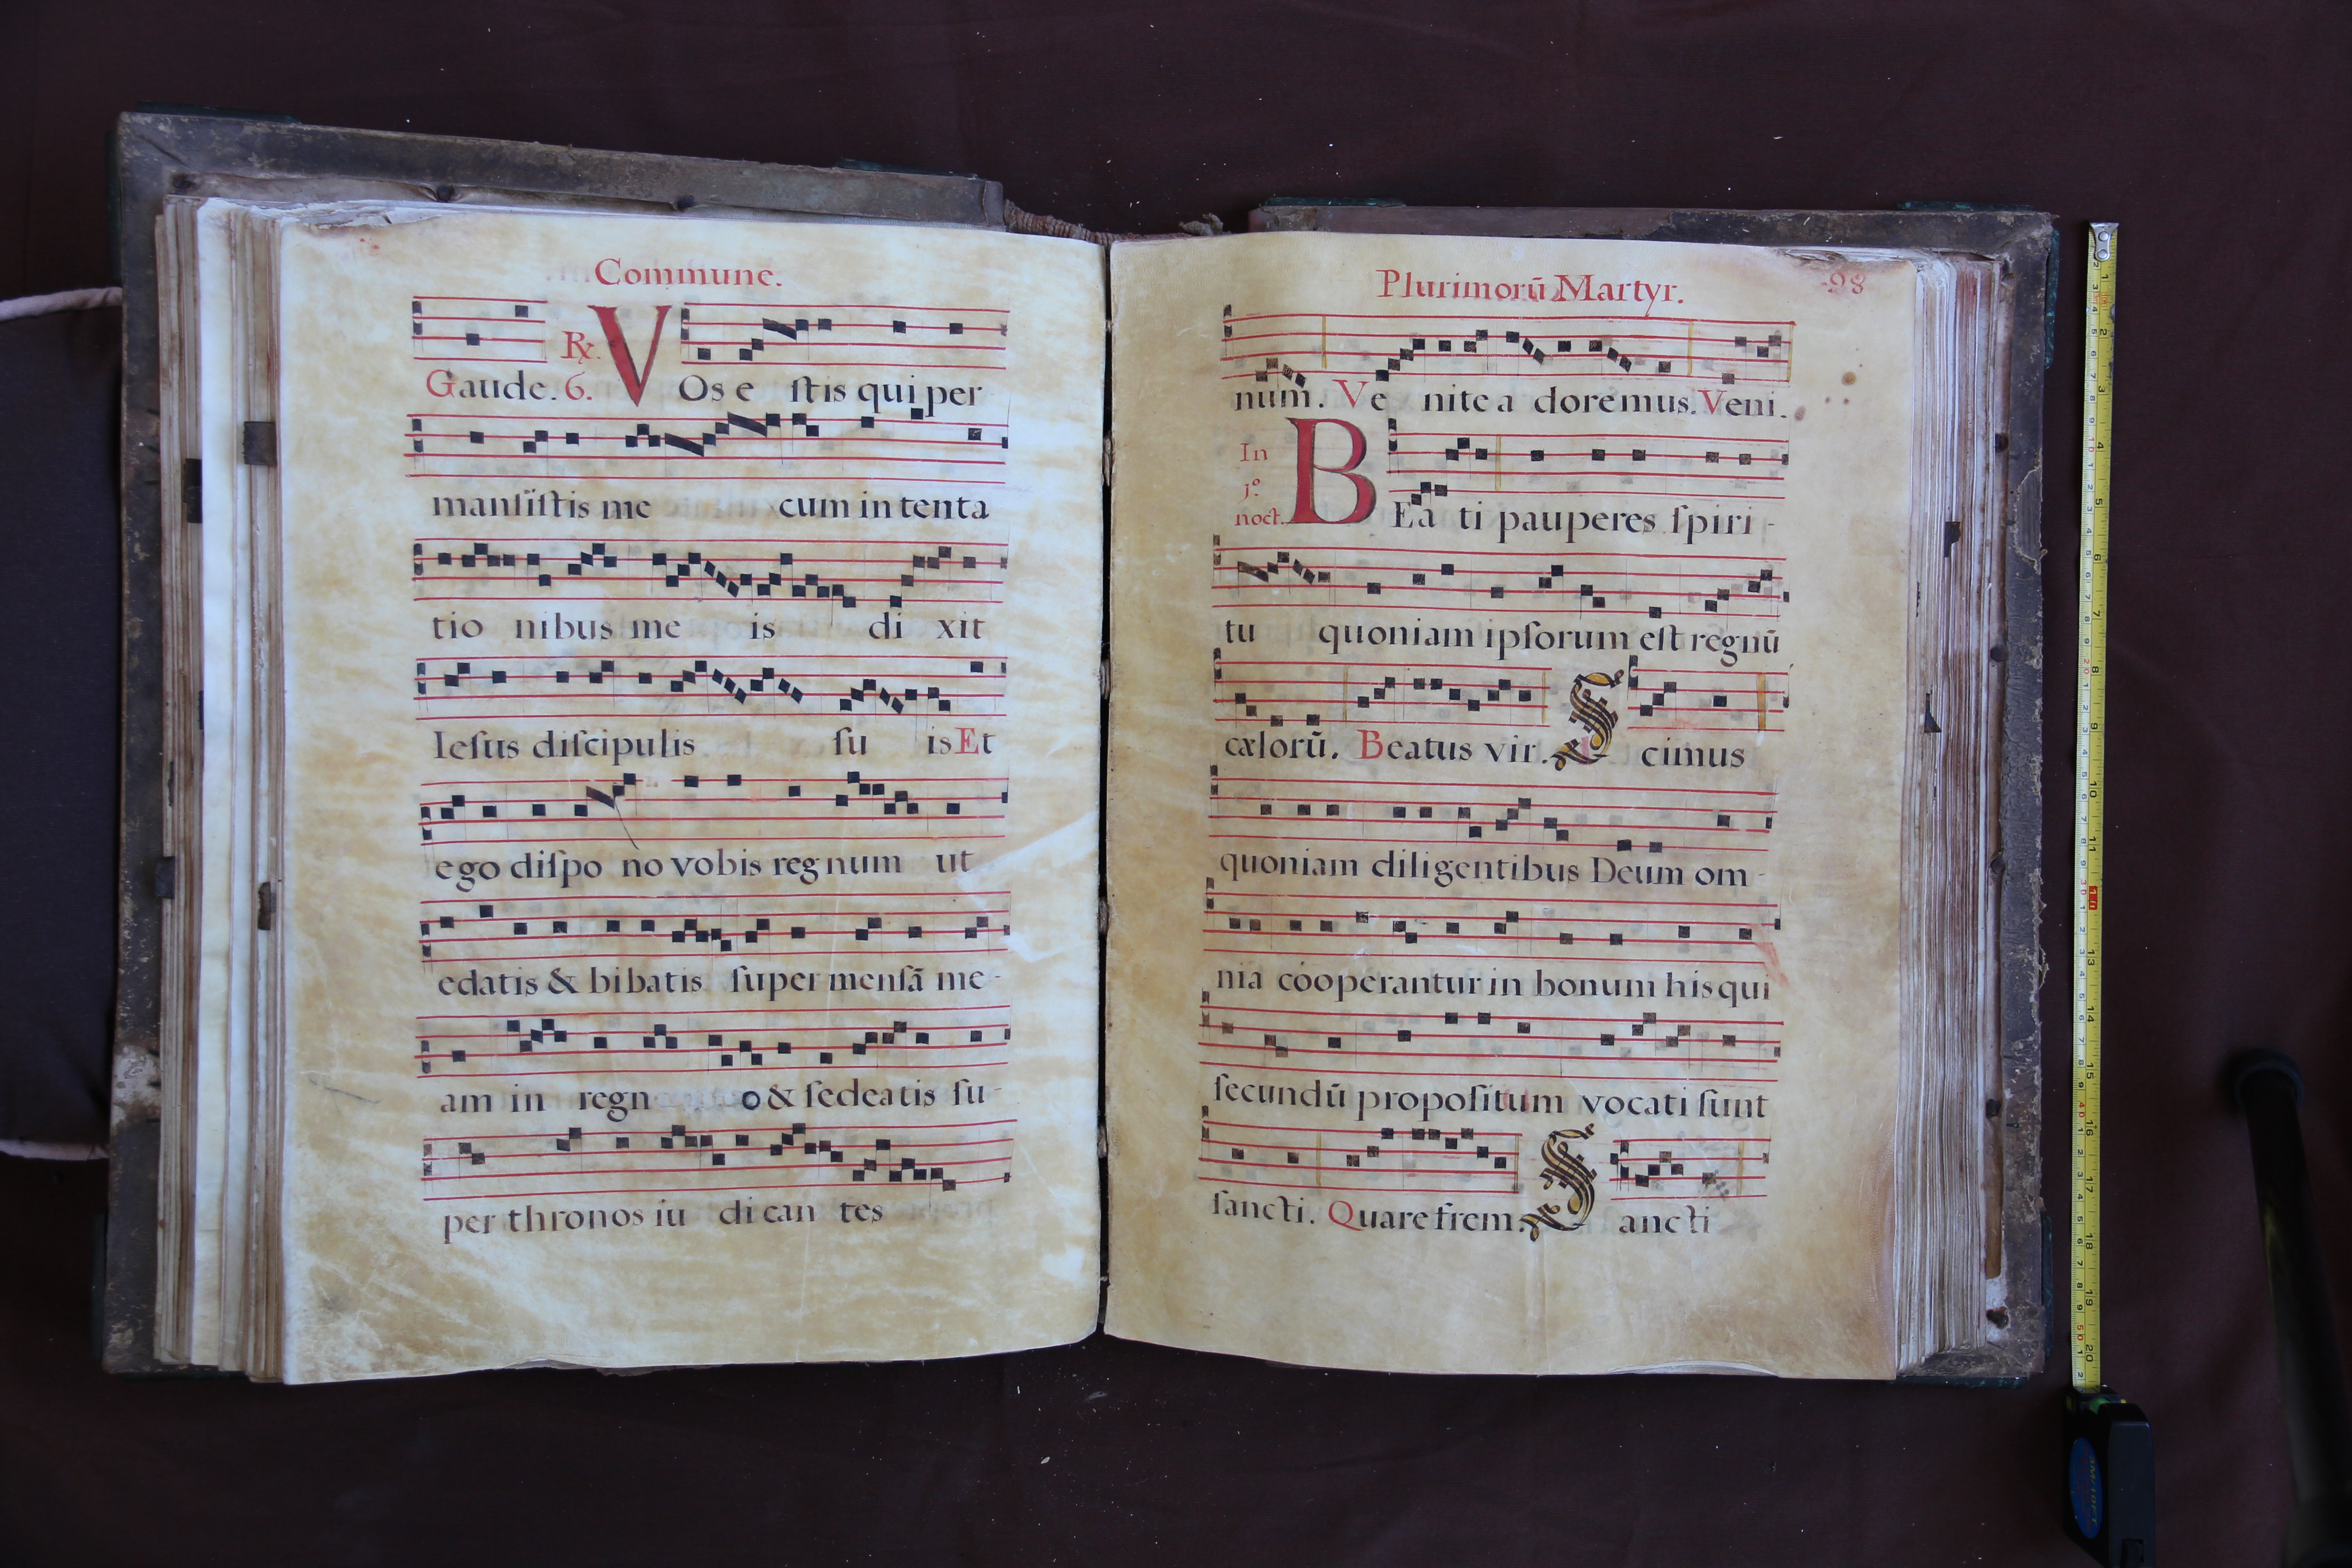 Commune.
Gaude. 6. ℟. VOs e ſtis qui per
manſiſtis me cum in tenta
tio nibus me is di xit
Ieſus diſcipulis ſu is Et
ego diſpo no vobis regnum ut
edatis & bibatis ſuper menſā me-
am in regn o & ſedeatis ſu-
per thronos iu di can tes
Plurimorū Martyr. 98
num. Ve nite a doremus. Veni.
In
j.º
noct. BEa ti pauperes ſpiri-
tu quoniam ipſorum eſt regnū
cælorū. Beatus vir. S cimus
quoniam diligentibus Deum om-
nia cóoperantur in bonum his qui
ſecundū propoſitum vocati ſunt
ſancti. Quare frem. S ancti